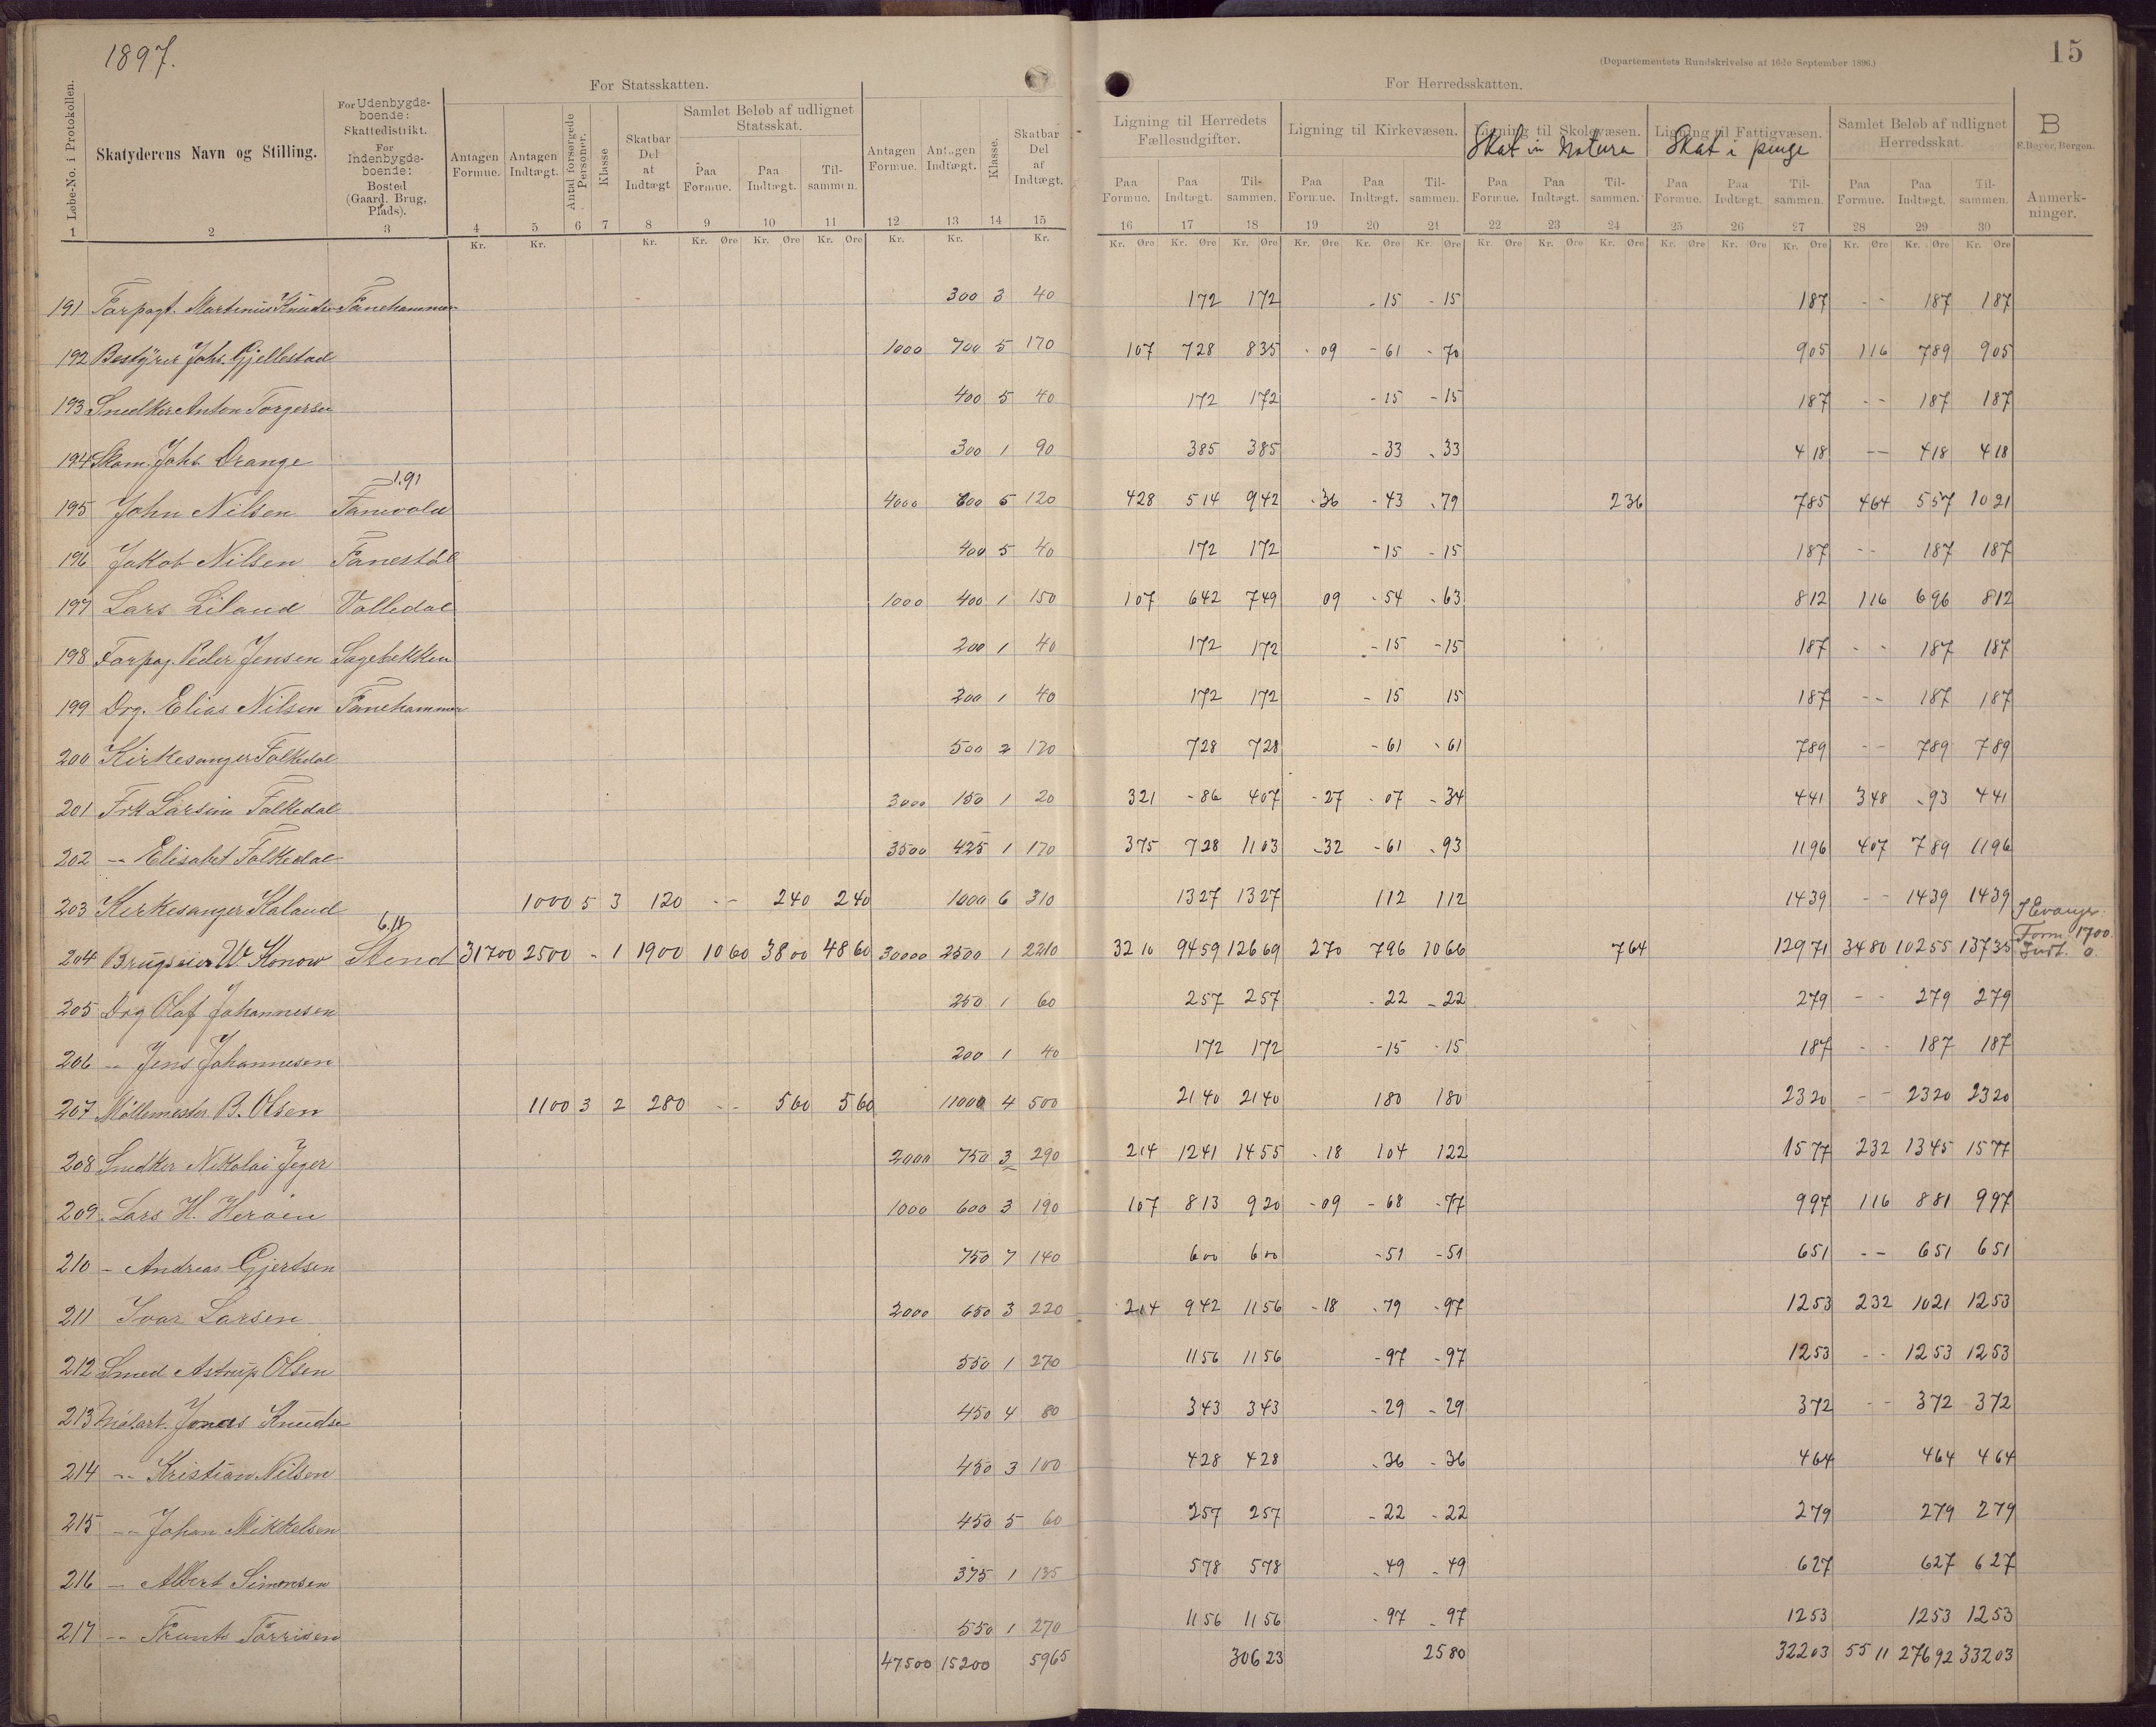 1897.
15
(Departementets Rundskrivelse af 16de September 1896.)
For Statsskatten.
For Herredsskatten.
Løbe-No. i Protokollen. Skatyderens Navn og Stilling. For Udenbygdsboende: Skattedistrikt. For Indenbygdsboende: Bosted (Gaard, Brug, Plads). Antagen Formue. Antagen Indtægt. Antal forsørgede Personer. Klasse Skatbar Del af Indtægt Samlet Beløb af udlignet Statsskat. Paa Formue. Paa Indtægt. Tilsammen. Antagen Formue. Antagen Indtægt. Klasse. Skatbar Del af Indtægt.
Ligning til Herredets Fællesudgifter. Ligning til Kirkevæsen. Ligning til Skolevæsen. Ligning til Fattigvæsen. Samlet Beløb af udlignet Herredsskat. B
Skat in Natura Skat i penge F. Beyer, Bergen.
Paa Formue. Paa Indtægt. Tilsammen. Paa Formue. Paa Indtægt. Tilsammen. Paa Formue. Paa Indtægt. Tilsammen. Paa Formue. Paa Indtægt. Tilsammen. Paa Formue. Paa Indtægt. Tilsammen. Anmerkninger.
1 2 3 4 5 6 7 8 9 10 11 12 13 14 15 16 17 18 19 20 21 22 23 24 25 26 27 28 29 30
Kr. Kr. Kr. Kr. Øre Kr. Øre Kr. Øre Kr. Kr. Kr. Kr. Øre Kr. Øre Kr. Øre Kr. Øre Kr. Øre Kr. Øre Kr. Øre Kr. Øre Kr. Øre Kr. Øre Kr. Øre Kr. Øre Kr. Øre Kr. Øre Kr. Øre
191 Forpagt. Martinus Knudsen Fanehammer 300 3 40 172 172 - 15 - 15 187 - - 187 187
192 Bestyrer Johs. Gjellestad 1000 700 5 170 107 728 835 - 09 - 61 - 70 905 116 789 905
193 Snedker Anton Torgersen 400 5 40 172 172 - 15 - 15 187 - - 187 187
194 Skom. Johs Drange 300 1 90 385 385 - 33 - 33 418 - - 418 418
1.91
195 John Nilsen Fanevold 4000 600 5 120 428 514 942 - 36 - 43 - 79 236 785 464 557 1021
196 Jakob Nilsen Fanestøl 400 5 40 172 172 - 15 - 15 187 - - 187 187
197 Lars Liland Valledal 1000 400 1 150 107 642 749 09 - 54 - 63 812 116 696 812
198 Forpag. Peder Jensen Sagebekken 200 1 40 172 172 - 15 - 15 187 - - 187 187
199 Drg. Elias Nilsen Fanehammer 200 1 40 172 172 - 15 15 187 - - 187 187
200 Kirkesanger Falkedal 500 2 170 728 728 - 61 - 61 789 - - 789 789
201 Frk Larsine Falkedal 3000 150 1 20 321 - 86 407 - 27 - 07 - 34 441 348 - 93 441
202 -"- Elisabet Falkedal 3500 425 1 170 375 728 1103 - 32 - 61 - 93 1196 407 789 1196
203 Kirkesanger Kaland 1000 5 3 120 - - 240 240 1000 6 310 1327 1327 112 112 1439 - - 1439 1439
I Evanger:
Form. 1700.
204 Brugseier W Konow Stend 31700 2500 - 1 1900 1060 3800 4860 30000 2500 1 2210 3210 9459 12669 270 796 1066 764 12971 3480 10255 13735 Indt. 0.
205 Drg Olaf Johannesen 250 1 60 257 257 - 22 - 22 279 - - 279 279
206 -"- Jens Johannesen 200 1 40 172 172 - 15 - 15 187 - - 187 187
207 Møllemester B. Olsen 1100 3 2 280 - - 560 560 1100 4 500 2140 2140 180 180 2320 - - 2320 2320
208 Snedker Nikolai Jeger 2000 750 3 290 214 1241 1455 - 18 104 122 1577 232 1345 1577
209 Lars H. Herøen 1000 600 3 190 107 813 920 - 09 - 68 - 77 997 116 881 997
210 - Andreas Gjertsen 750 7 140 600 600 - 51 - 51 651 - - 651 651
211 Ivar Larsen 2000 650 3 220 214 942 1156 - 18 - 79 - 97 1253 232 1021 1253
212 Smed Astrup Olsen 550 1 270 1156 1156 - 97 - 97 1253 - - 1253 1253
213 Mølart. Jonas Knudsen 450 4 80 343 343 - 29 - 29 372 - - 372 372
214 -"- Kristian Nilsen 450 3 100 428 428 - 36 - 36 464 464 464
215 -"- Johan Mikkelsen 450 5 60 257 257 - 22 - 22 279 279 279
216 -"- Albert Simonsen 375 1 135 578 578 - 49 - 49 627 627 627
217 -"- Frants Torrisen 550 1 270 1156 1156 - 97 - 97 1253 1253 1253
47500 15200 5965 30623 2580 32203 5511 27692 33203